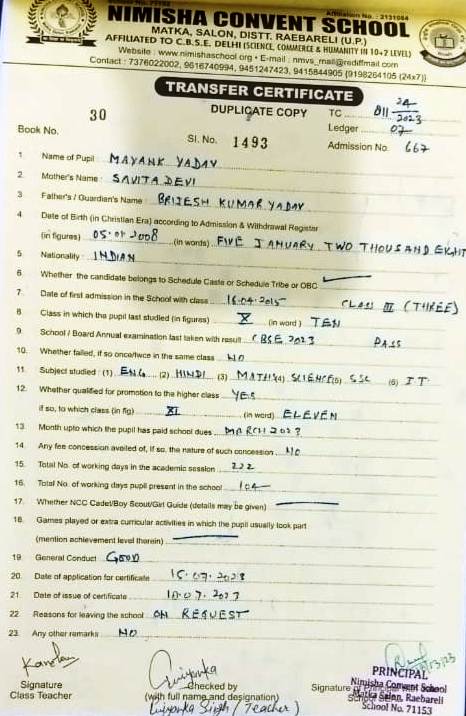 Affiliation No. : 2131084
NIMISHA CONVENT SCHOOL
MATKA, SALON, DISTT. RAEBARELI (U.P.)
AFFILIATED TO C.B.S.E. DELHI (SCIENCE, COMMERCE & HUMANITY IN 10+2 LEVEL)
Website : www.nimishaschool.org • E-mail : nmvs_mail@rediffmail.com
Contact : 7376022002, 9616740994, 9451247423, 9415844905 {9198264105 (24x7)}
TRANSFER CERTIFICATE
DUPLICATE COPY
TC
24
2023
Book No. 30
Ledger 07
Sl. No. 1493
Admission No. 667
1 Name of Pupil : MAYANK YADAV
2. Mother's Name : SAVITA DEVI
3 Father's / Guardian's Name : BRIJESH KUMAR YADAV
4. Date of Birth (in Christian Era) according to Admission & Withdrawal Register
(in figures) 05.01.2008 (in words) FIVE JANUARY TWO THOUSAND EIGHT
5 Nationality : INDIAN
6. Whether the candidate belongs to Schedule Caste or Schedule Tribe or OBC
7. Date of first admission in the School with class 16.04.2015 CLASS III (THREE)
8 Class in which the pupil last studied (in figures) X (in word) TEN
9 School / Board Annual examination last taken with result CBSE 2023 PASS
10. Whether failed, if so once/twice in the same class NO
11. Subject studied : (1) ENG (2) HINDI (3) MATH (4) SCIENCE (5) SSC (6) IT
12. Whether qualified for promotion to the higher class YES
if so, to which class (in fig) XI (in word) ELEVEN
13. Month upto which the pupil has paid school dues MARCH 2023
14. Any fee concession availed of, If so, the nature of such concession NO
15. Total No. of working days in the academic session 222
16. Total No. of working days pupil present in the school 104
17. Whether NCC Cadet/Boy Scout/Girl Guide (details may be given)
18. Games played or extra curricular activities in which the pupil usually took part
(mention achievement level therein)
19. General Conduct GOOD
20. Date of application for certificate 15.07.2023
21. Date of issue of certificate 18.07.2023
22 Reasons for leaving the school ON REQUEST
23. Any other remarks NO
Signature
Class Teacher
Priyanka
Checked by
(with full name and designation)
Priyanka Singh (Teacher)
Signature of
PRINCIPAL
Nimisha Convent School
Matka Salon, Raebareli
School No. 71153